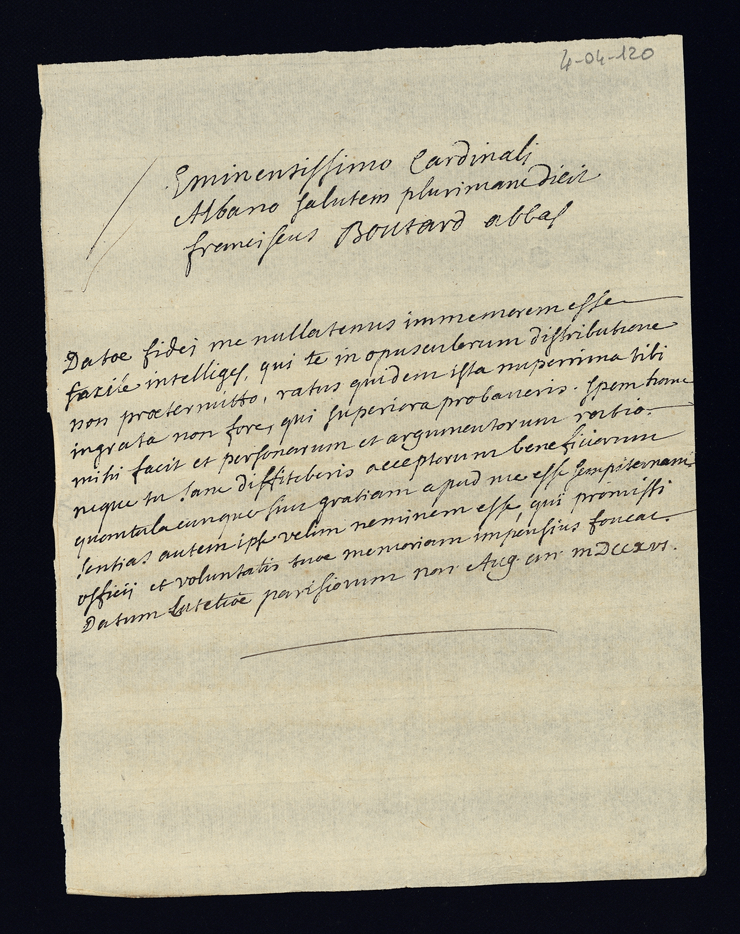 4-04-120
Eminentissimo Cardinali
Albano salutem plurimam dicit
franciscus Boutard abbas
Datoe fidei me nullatenus immemorem esse
facilè intelliges, qui te in opusculorum distributione
non proetermitto, ratus quidem ista nuperrima tibi
ingrata non fore, qui superiora probaueris. Spem hanc
mihi facit et personarum et argumentorum ratio.
neque tu sane diffiteberis acceptorum beneficiorum
quantulacunque sint gratiam apud me esse sempiternam.
sentias autem ipse velim neminem esse, qui promissi
officij et voluntatis tuoe memoriam impensius foueat.
Datum Lutetioe parisiorum non Aug an MDCCXVI.